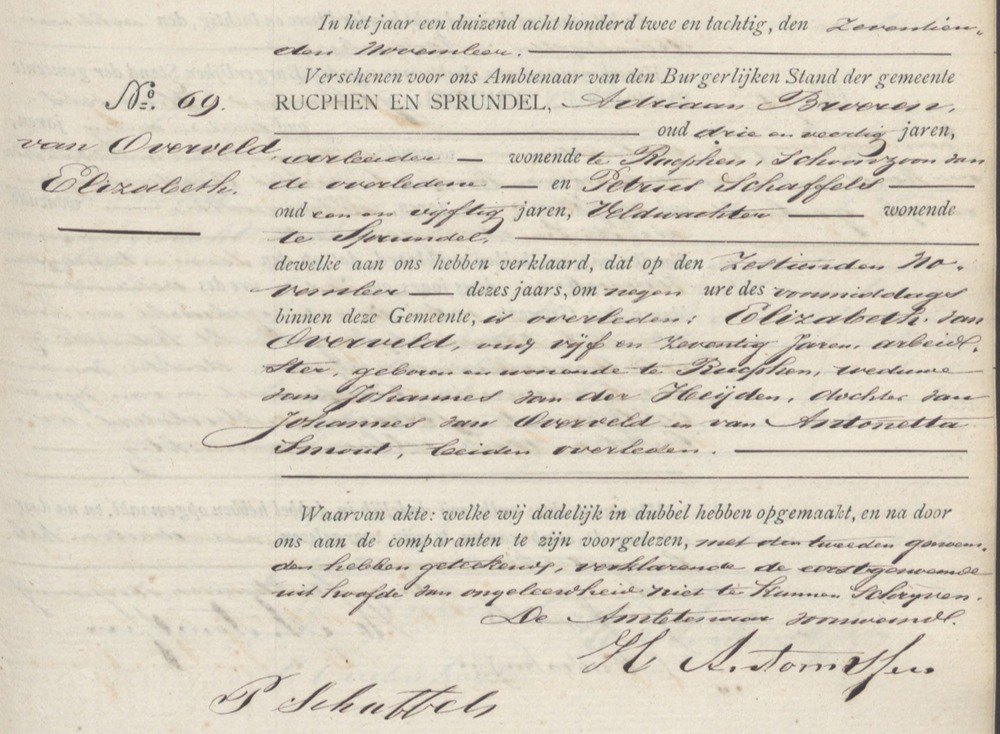 In het jaar een duizend acht honderd twee en tachtig, den Zeventien-
den November.
Verschenen voor ons Ambtenaar van den Burgerlijken Stand der gemeente
No. 69.
RUCPHEN EN SPRUNDEL, Adriaan Broeren,
oud drie en veertig jaren,
van Overveld
Elizabeth.
arbeider wonende te Rucphen, Schoonzoon van
de overledene en Petrus Schaffels
oud een en vijftig jaren, Veldwachter wonende
te Sprundel.
dewelke aan ons hebben verklaard, dat op den Zestienden No-
vember dezes jaars, om negen ure des voormiddags
binnen deze Gemeente, is overleden: Elizabeth van
Overveld, oud vijf en Zeventig Jaren, arbeid-
ster, geboren en wonende te Rucphen, weduwe
van Johannes van der Heijden, dochter van
Johannes van Overveld en van Antonetta
Smout, beiden overleden.
Waarvan akte: welke wij dadelijk in dubbel hebben opgemaakt, en na door
ons aan de comparanten te zijn voorgelezen, met den tweeden genoem-
den hebben geteekend, verklarende de eerstgenoemde
uit hoofde van ongeleerdheid niet te kunnen Schrijven.
De Ambtenaar voornoemd.
H Antonissen
P Schaffels